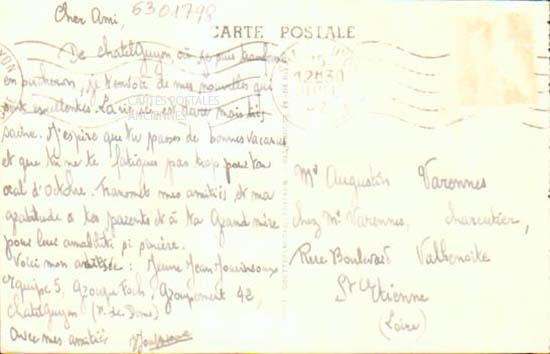 Cher Ami,
6301798
CARTE POSTALE
De Chatelguyon où je suis
en , je t'envoie de mes nouvelles qui
sont excellentes. La vie ici est dure mais très
saine. J'espère que tu passes de bonnes vacances
et que tu ne te fatigues pas trop pour ton
oral d'Octobre. Transmet mes amitiés et ma
gratitude à tes parents et à ta grand mère
pour leur amabilité si sincère.
Voici mon adresse : Jeune Jean
équipe 5, Groupe Foch, Groupement 42,
Chatelguyon (P. de Dome)
Avec mes amitiés
CARTES POSTALES
ANCIENNES
12H30
Mr Augustin Varennes
chez Mr Varennes, charcutier,
Rue Boulevard Valbenoite
St Etienne
(Loire)